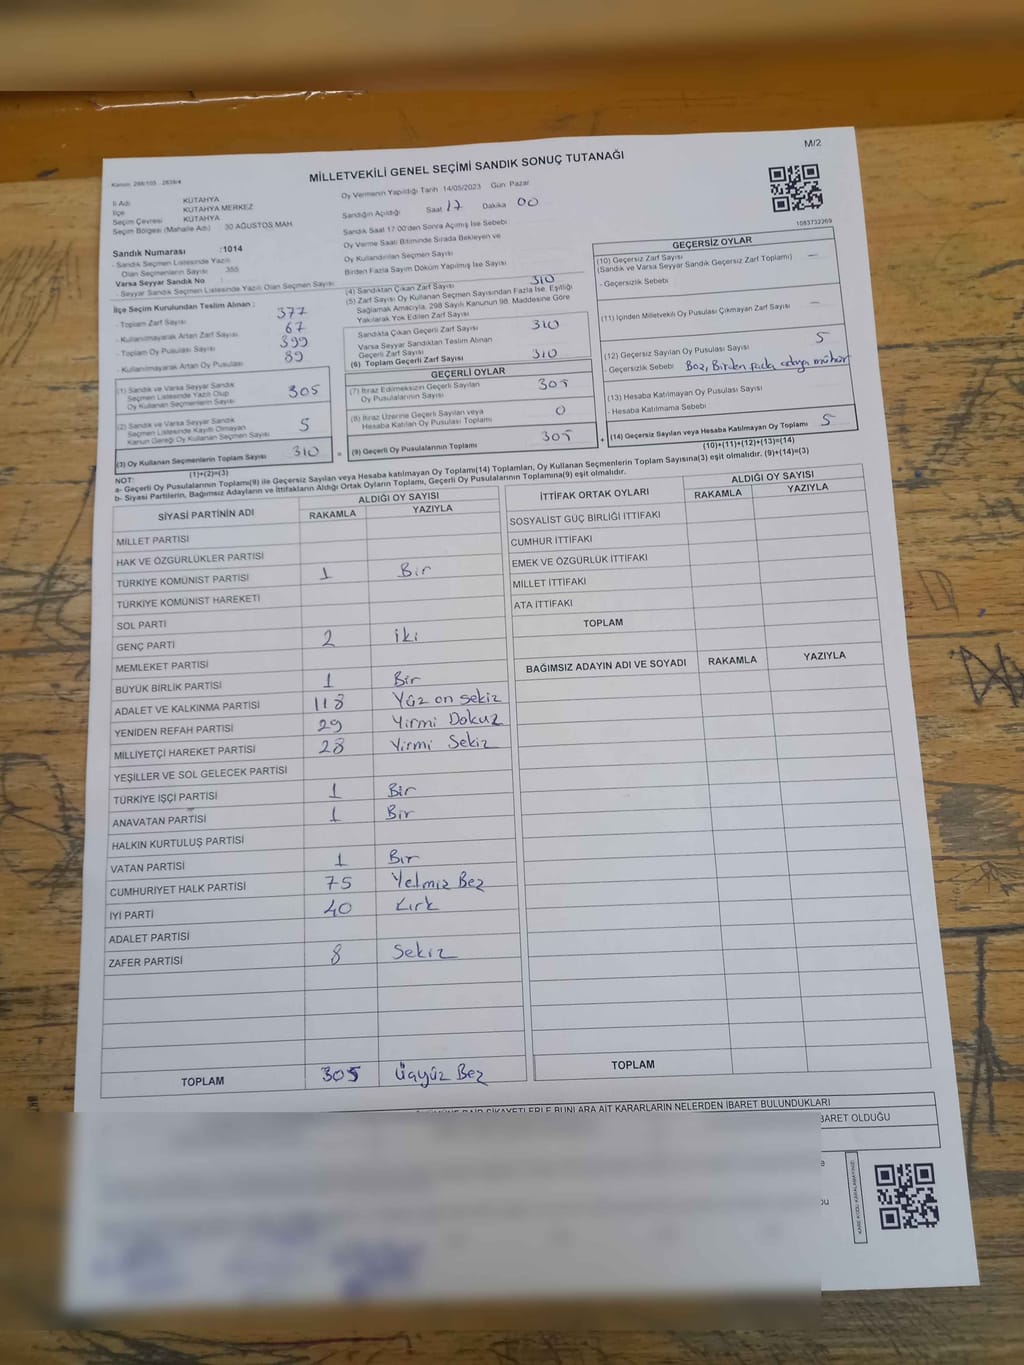 M/2
MİLLETVEKİLİ GENEL SEÇİMİ SANDIK SONUÇ TUTANAĞI
İl Adı KÜTAHYA
İlçe KÜTAHYA MERKEZ
Seçim Çevresi KÜTAHYA
Seçim Bölgesi (Mahalle Adı) 30 AĞUSTOS MAH.
Oy Vermenin Yapıldığı Tarih 14/05/2023 Gün Pazar
Sandığın Açıldığı Saat 17 Dakika 00
Sandık Saat 17:00'den Sonra Açılmış İse Sebebi
Oy Verme Saati Bitiminde Sırada Bekleyen ve
Oy Kullandırılan Seçmen Sayısı
Birden Fazla Sayım Döküm Yapılmış İse Sayısı
1083732269
Sandık Numarası :1014
- Sandık Seçmen Listesinde Yazılı
Olan Seçmenlerin Sayısı : 355
Varsa Seyyar Sandık No :
- Seyyar Sandık Seçmen Listesinde Yazılı Olan Seçmen Sayısı
İlçe Seçim Kurulundan Teslim Alınan :
- Toplam Zarf Sayısı 377
- Kullanılmayarak Artan Zarf Sayısı 67
- Toplam Oy Pusulası Sayısı 399
- Kullanılmayarak Artan Oy Pusulası 89
(1) Sandık ve Varsa Seyyar Sandık
Seçmen Listesinde Yazılı Olup
Oy Kullanan Seçmen Sayısı 305
(2) Sandık ve Varsa Seyyar Sandık
Seçmen Listesinde Kayıtlı Olmayan
Kanun Gereği Oy Kullanan Seçmen Sayısı 5
(3) Oy Kullanan Seçmenlerin Toplam Sayısı 310
(1)+(2)=(3)
(4) Sandıktan Çıkan Zarf Sayısı 310
(5) Zarf Sayısı Oy Kullanan Seçmen Sayısından Fazla İse, Eşitliği
Sağlamak Amacıyla, 298 Sayılı Kanunun 98. Maddesine Göre
Yakılarak Yok Edilen Zarf Sayısı
Sandıkta Çıkan Geçerli Zarf Sayısı 310
Varsa Seyyar Sandıktan Teslim Alınan
Geçerli Zarf Sayısı
(6) Toplam Geçerli Zarf Sayısı 310
GEÇERLİ OYLAR
(7) İtiraz Edilmeksizin Geçerli Sayılan
Oy Pusulalarının Sayısı 305
(8) İtiraz Üzerine Geçerli Sayılan veya
Hesaba Katılan Oy Pusulası Toplamı 0
= (9) Geçerli Oy Pusulalarının Toplamı 305
GEÇERSİZ OYLAR
(10) Geçersiz Zarf Sayısı —
(Sandık ve Varsa Seyyar Sandık Geçersiz Zarf Toplamı)
- Geçersizlik Sebebi
(11) İçinden Milletvekili Oy Pusulası Çıkmayan Zarf Sayısı —
(12) Geçersiz Sayılan Oy Pusulası Sayısı 5
- Geçersizlik Sebebi Boş, Birden fazla mühür
(13) Hesaba Katılmayan Oy Pusulası Sayısı
- Hesaba Katılmama Sebebi
+ (14) Geçersiz Sayılan veya Hesaba Katılmayan Oy Toplamı 5
(10)+(11)+(12)+(13)=(14)
NOT:
a- Geçerli Oy Pusulalarının Toplamı(9) ile Geçersiz Sayılan veya Hesaba katılmayan Oy Toplamı(14) Toplamları, Oy Kullanan Seçmenlerin Toplam Sayısına(3) eşit olmalıdır. (9)+(14)=(3)
b- Siyasi Partilerin, Bağımsız Adayların ve İttifakların Aldığı Ortak Oyların Toplamı, Geçerli Oy Pusulalarının Toplamına(9) eşit olmalıdır.
SİYASİ PARTİNİN ADI ALDIĞI OY SAYISI
RAKAMLA YAZIYLA
MİLLET PARTİSİ
HAK VE ÖZGÜRLÜKLER PARTİSİ
TÜRKİYE KOMÜNİST PARTİSİ 1 Bir
TÜRKİYE KOMÜNİST HAREKETİ
SOL PARTİ
GENÇ PARTİ 2 iki
MEMLEKET PARTİSİ
BÜYÜK BİRLİK PARTİSİ 1 Bir
ADALET VE KALKINMA PARTİSİ 118 Yüz on sekiz
YENİDEN REFAH PARTİSİ 29 Yirmi Dokuz
MİLLİYETÇİ HAREKET PARTİSİ 28 Yirmi Sekiz
YEŞİLLER VE SOL GELECEK PARTİSİ
TÜRKİYE İŞÇİ PARTİSİ 1 Bir
ANAVATAN PARTİSİ 1 Bir
HALKIN KURTULUŞ PARTİSİ
VATAN PARTİSİ 1 Bir
CUMHURİYET HALK PARTİSİ 75 Yetmiş Beş
İYİ PARTİ 40 Kırk
ADALET PARTİSİ
ZAFER PARTİSİ 8 Sekiz
TOPLAM 305 Üçyüz Beş
İTTİFAK ORTAK OYLARI ALDIĞI OY SAYISI
RAKAMLA YAZIYLA
SOSYALİST GÜÇ BİRLİĞİ İTTİFAKI
CUMHUR İTTİFAKI
EMEK VE ÖZGÜRLÜK İTTİFAKI
MİLLET İTTİFAKI
ATA İTTİFAKI
TOPLAM
BAĞIMSIZ ADAYIN ADI VE SOYADI RAKAMLA YAZIYLA
TOPLAM
ŞİKAYETLERLE BUNLARA AİT KARARLARIN NELERDEN İBARET BULUNDUKLARI
BARET OLDUĞU